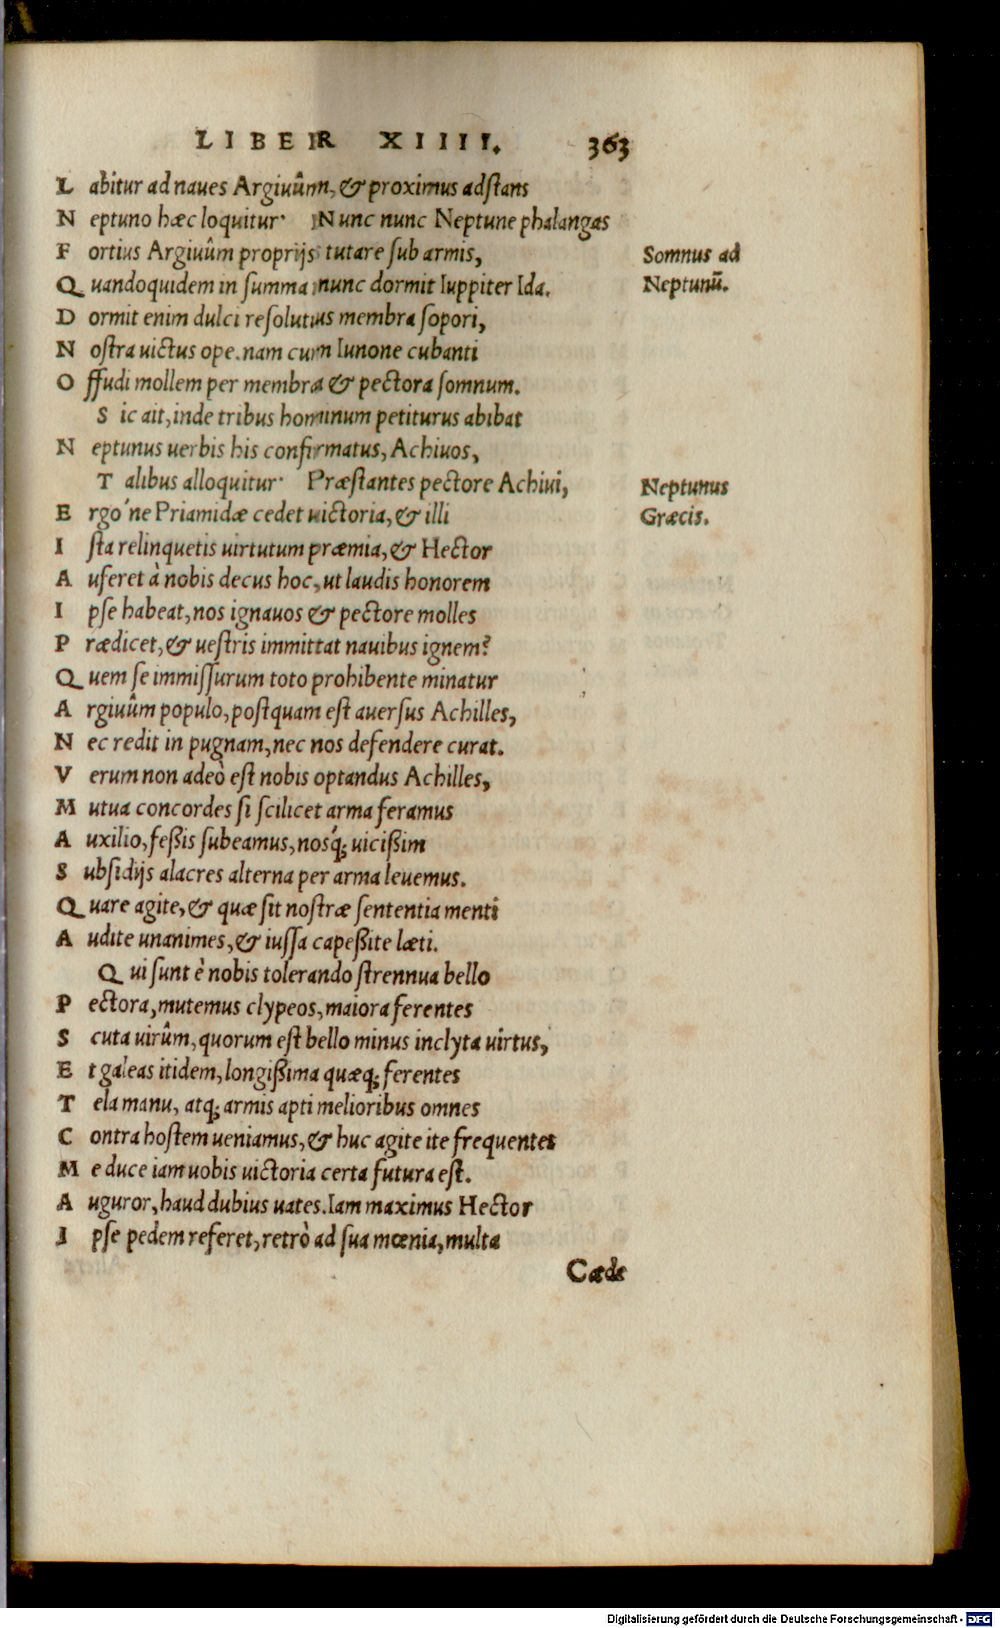 LIBER XIIII. 363
Labitur ad naues Argiuûm, & proximus adstans
Neptuno hæc loquitur· Nunc nunc Neptune phalangas
Fortius Argiuûm proprijs tutare sub armis,
Somnus ad
Quandoquidem in summa nunc dormit Iuppiter Ida.
Neptunũ.
Dormit enim dulci resolutus membra sopori,
Nostra uictus ope.nam cum Iunone cubanti
Offudi mollem per membra & pectora somnum.
Sic ait,inde tribus hominum petiturus abibat
Neptunus uerbis his confirmatus, Achiuos,
Talibus alloquitur· Præstantes pectore Achiui,
Neptunus
Ergo´ne Priamidæ cedet uictoria,& illi
Græcis.
Ista relinquetis uirtutum præmia,& Hector
Auferet à nobis decus hoc, ut laudis honorem
Ipse habeat,nos ignauos & pectore molles
Prædicet,& uestris immittat nauibus ignem?
Quem se immissurum toto prohibente minatur
Argiuûm populo,postquam est auersus Achilles,
Nec redit in pugnam,nec nos defendere curat.
Verum non adeò est nobis optandus Achilles,
Mutua concordes si scilicet arma feramus
Auxilio,feßis subeamus,nosq́; uicißim
Subsidijs alacres alterna per arma leuemus.
Quare agite,& quæ sit nostræ sententia menti
Audite unanimes,& iussa capeßite læti.
Qui sunt è nobis tolerando strennua bello
Pectora,mutemus clypeos,maiora ferentes
Scuta uirûm,quorum est bello minus inclyta uirtus,
Et galeas itidem,longißima quæq; ferentes
Tela manu, atq; armis apti melioribus omnes
Contra hostem ueniamus,& huc agite ite frequentes
Me duce iam uobis uictoria certa futura est.
Auguror,haud dubius uates.Iam maximus Hector
Ipse pedem referet,retrò ad sua mœnia,multa
Cæde
Digitalisierung gefördert durch die Deutsche Forschungsgemeinschaft - DFG